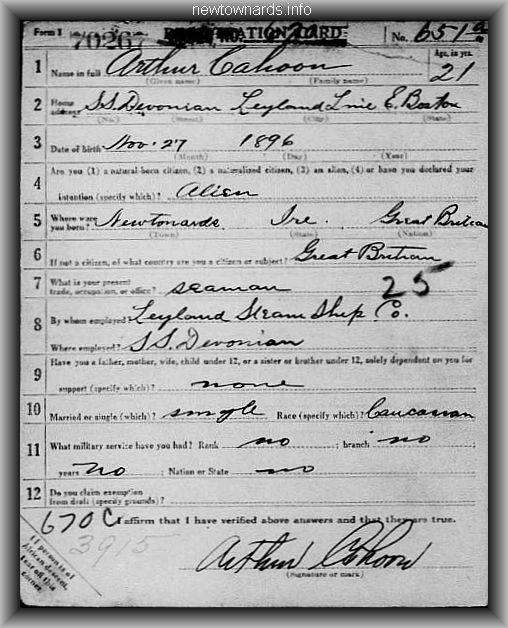 newtownards.info
Form 1 70267 REGISTRATION CARD No. 651
1 Name in full Arthur Cahoon Age, in yrs. 21
(Given name) (Family name)
2 Home address S.S. Devonian Leyland Line E. Boston
(No.) (Street) (City) (State)
3 Date of birth Nov. 27 1896
(Month) (Day) (Year)
4 Are you (1) a natural-born citizen, (2) a naturalized citizen, (3) an alien, (4) or have you declared your
intention (specify which)? Alien
5 Where were you born? Newtonards Ire. Great Britian
(Town) (State) (Nation)
6 If not a citizen, of what country are you a citizen or subject? Great Britian
7 What is your present trade, occupation, or office? seaman 25
8 By whom employed? Leyland Steam Ship Co.
Where employed? S.S. Devonian
9 Have you a father, mother, wife, child under 12, or a sister or brother under 12, solely dependent on you for
support (specify which)? none
10 Married or single (which)? single Race (specify which)? Caucasian
11 What military service have you had? Rank no ; branch no
years no ; Nation or State no
12 Do you claim exemption from draft (specify grounds)?
670 C I affirm that I have verified above answers and that they are true.
3915
If person is of African descent, tear off this corner.
Arthur Cahoon
(Signature or mark)